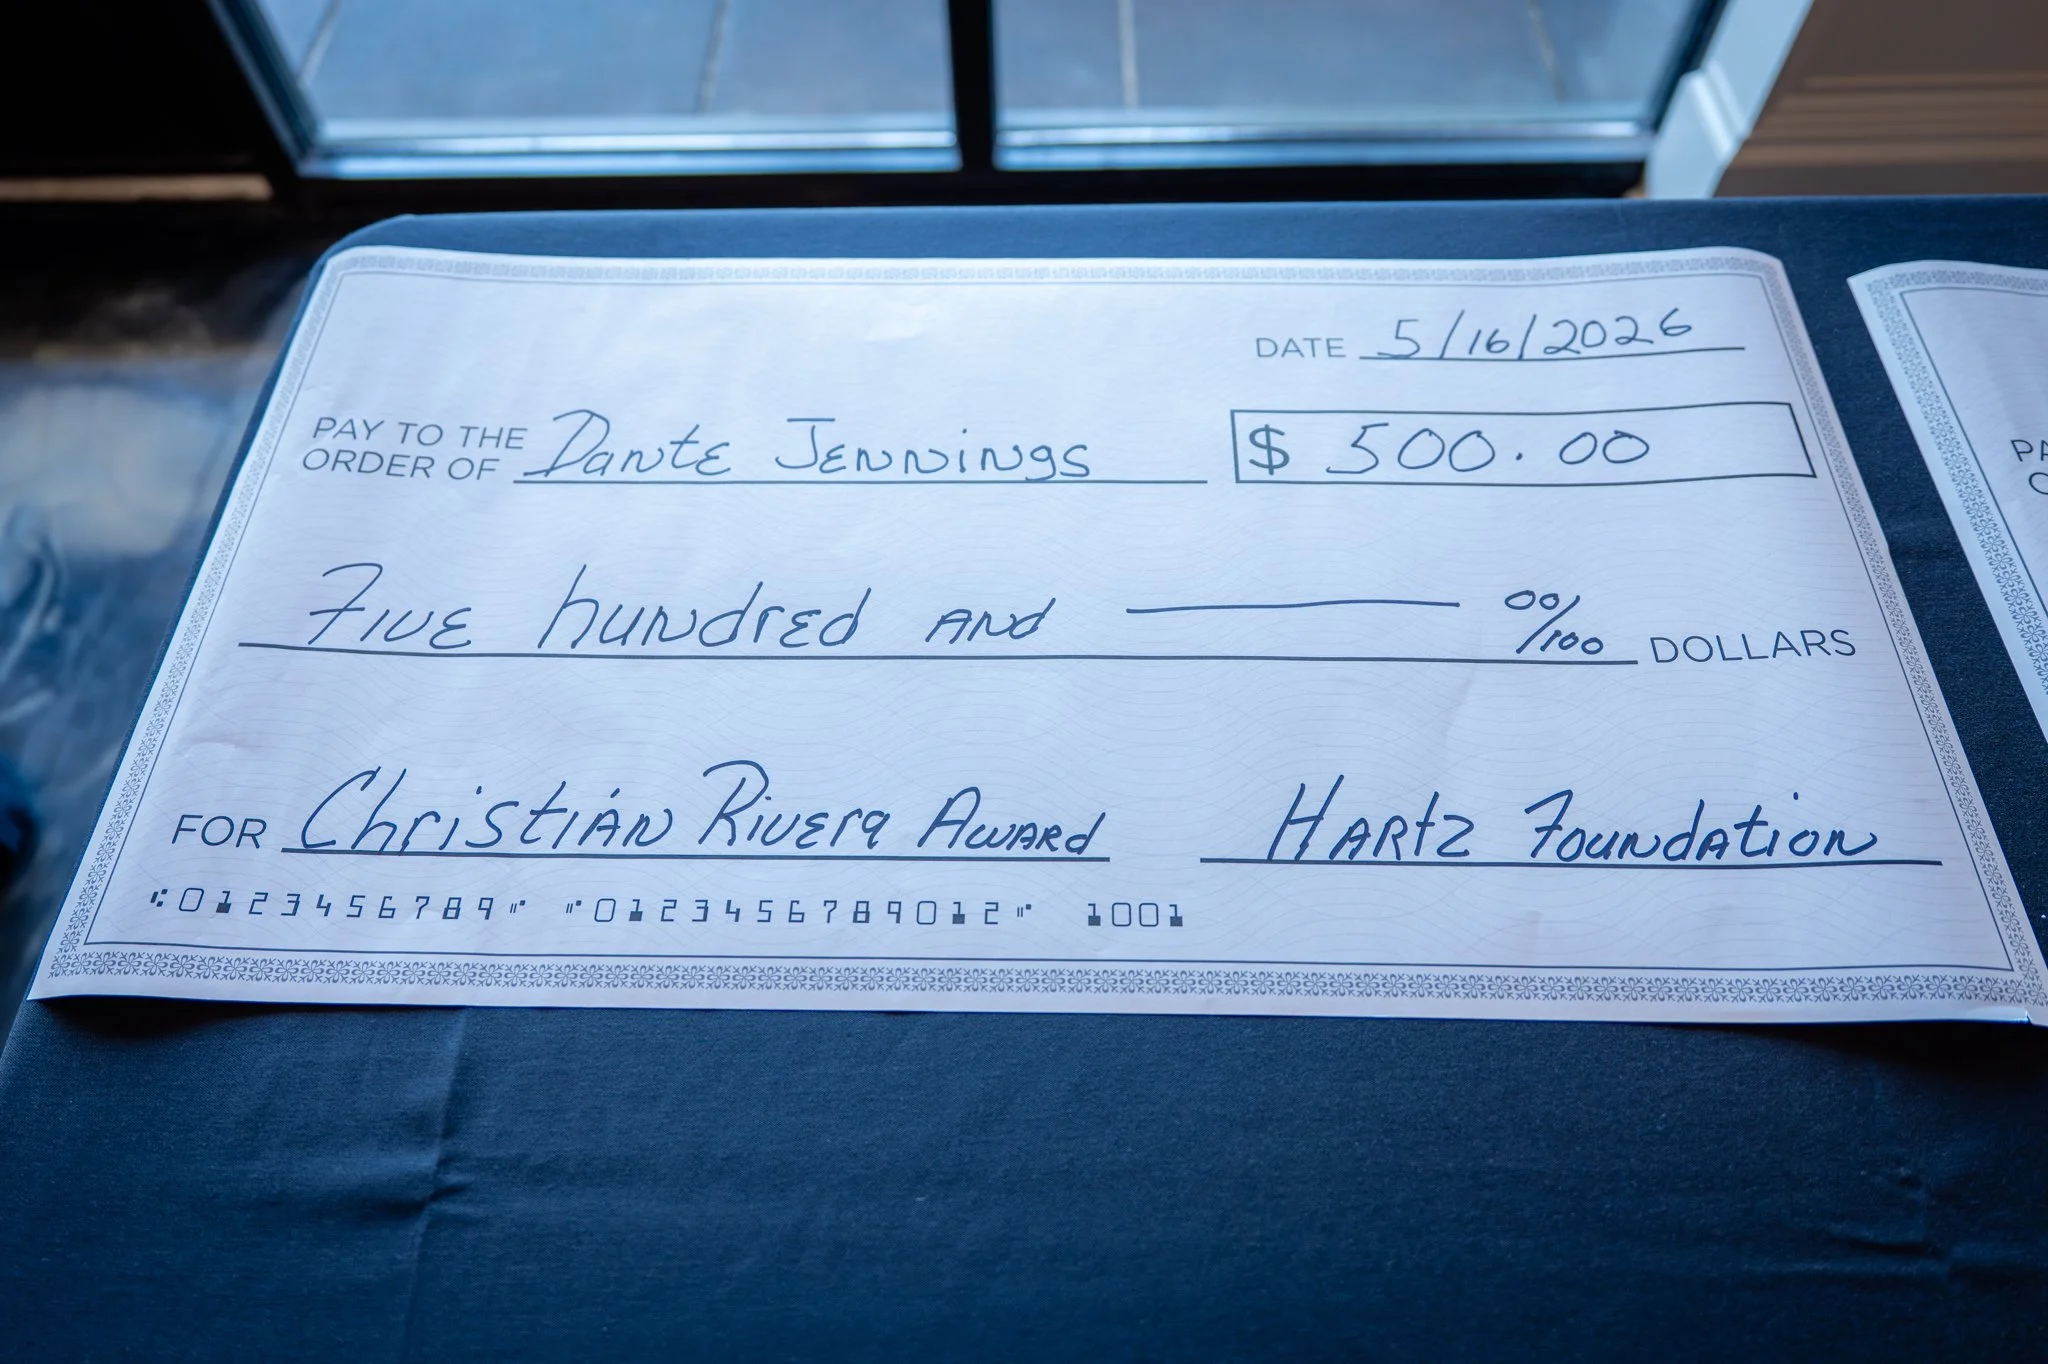 DATE 5/16/2026
PAY TO THE
ORDER OF Dante Jennings $ 500.00
Five hundred and 00/100 DOLLARS
FOR Christian Rivera Award Hartz Foundation
⑆0123456789⑈ ⑈0123456789012⑈ 1001
PA
O